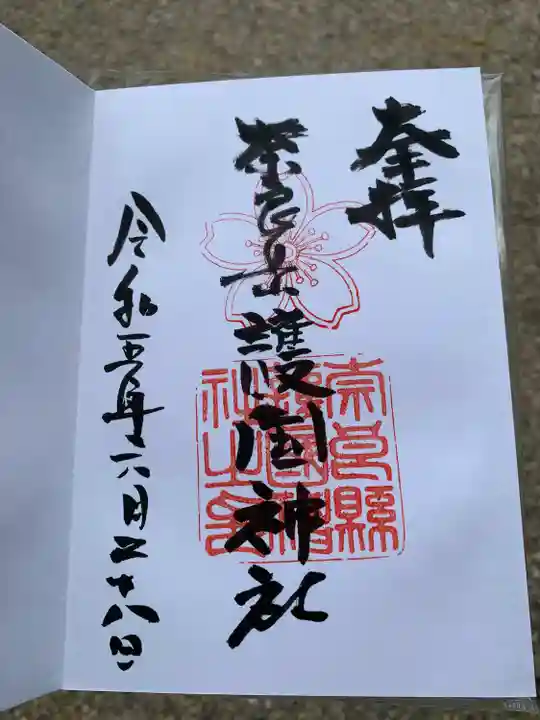 奉拝
奈良県護国神社
奈良縣
護國神
社之印
令和五年六月二十八日